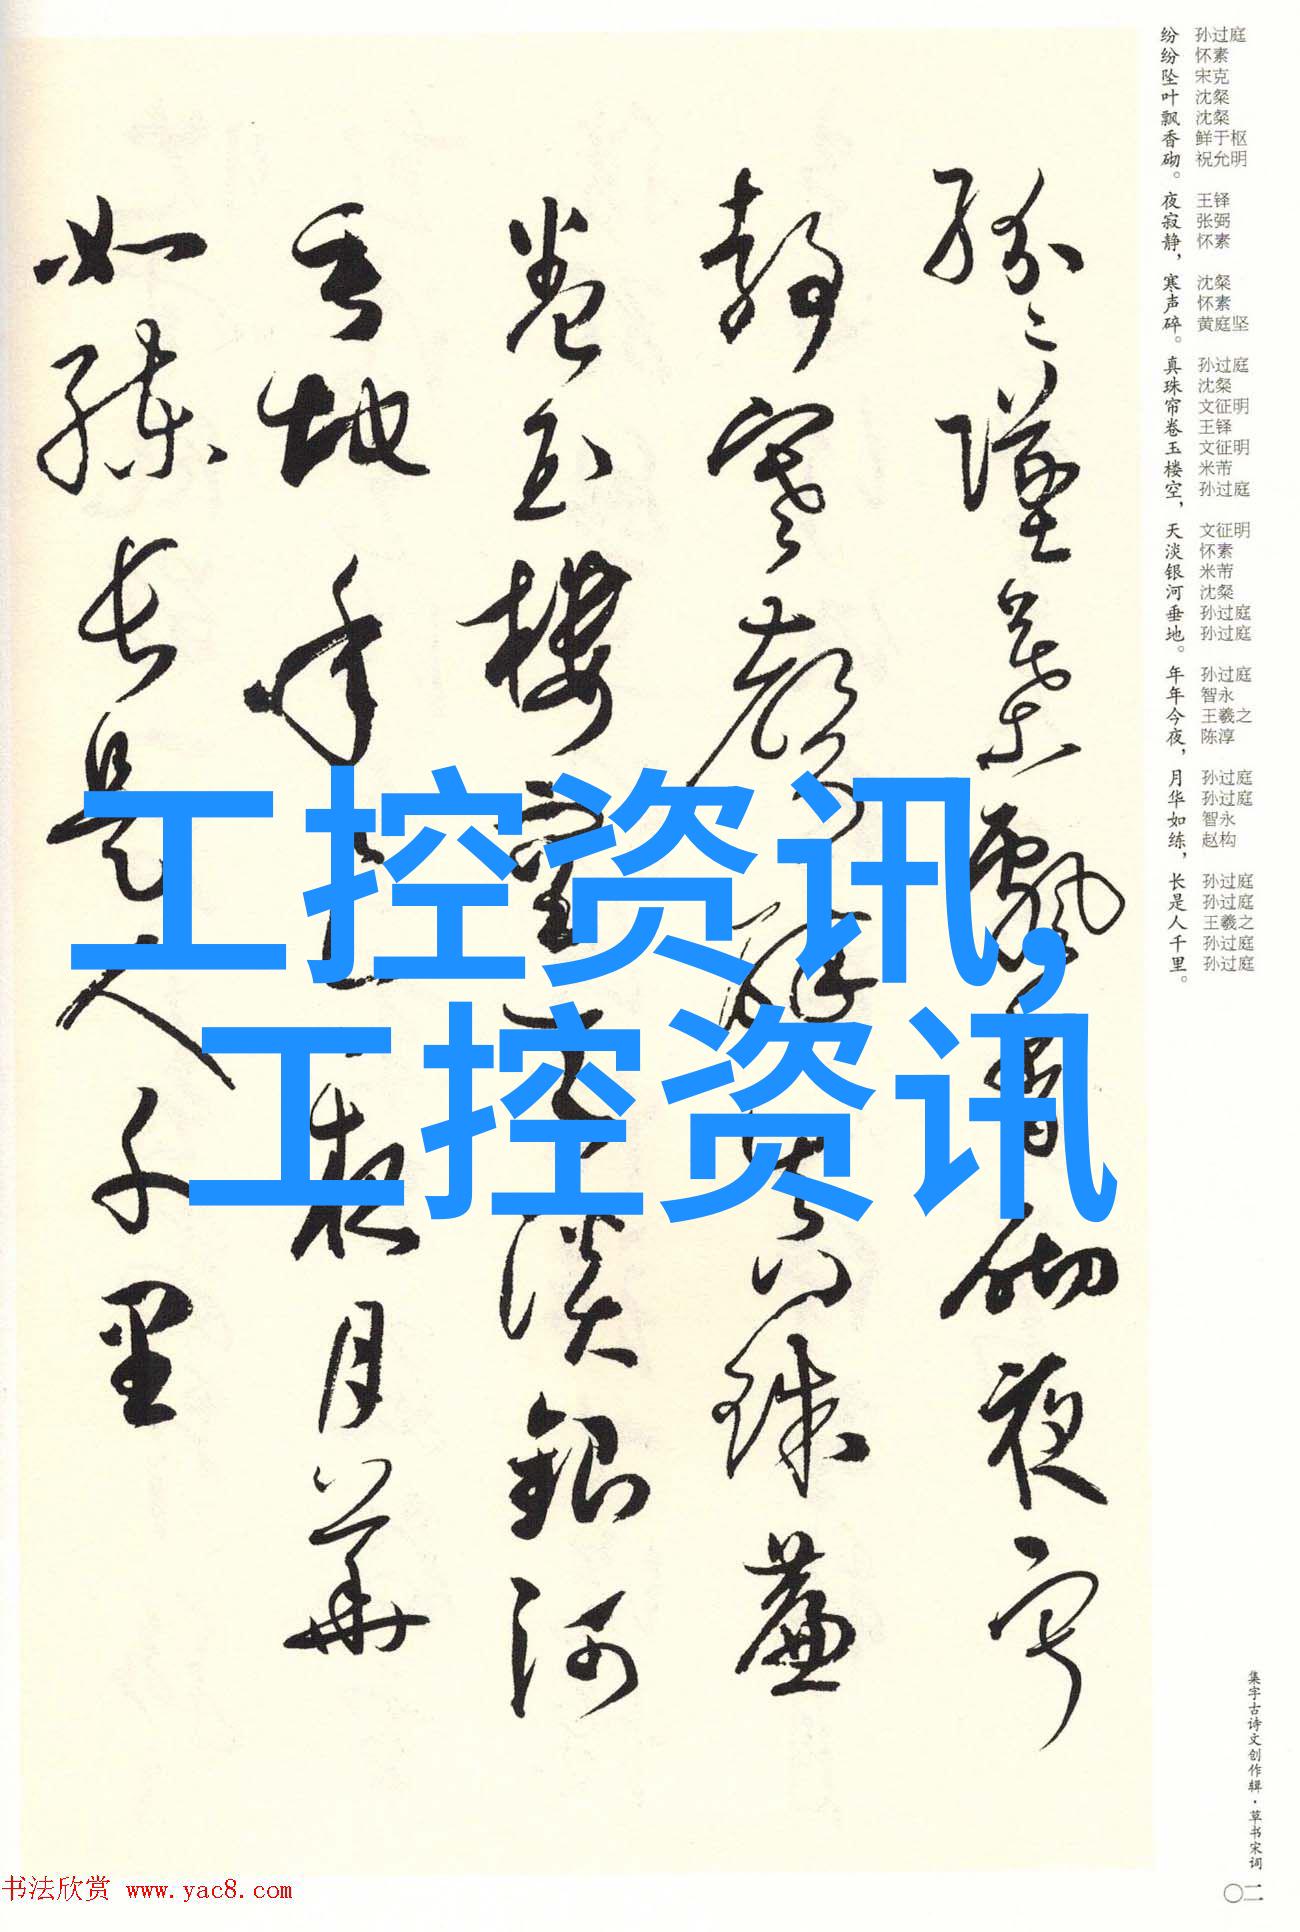 纷纷坠叶飘香砌。夜寂静，寒声碎。真珠帘卷玉楼空，天淡银河垂地。年年今夜，月华如练，长是人千里。
孙过庭 怀素 宋克 沈粲 沈粲 鲜于枢 祝允明 王铎 张弼 怀素 沈粲 怀素 黄庭坚 孙过庭 沈粲 文征明 王铎 文征明 米芾 孙过庭 文征明 怀素 米芾 沈粲 孙过庭 孙过庭 孙过庭 智永 王羲之 陈淳 孙过庭 孙过庭 智永 赵构 孙过庭 孙过庭 王羲之 孙过庭 孙过庭
纷〻坠叶飘香砌夜寂
静寒声碎真珠簾
卷玉楼空天淡銀河
垂地年〻今夜月華
如练长是人千里
工控资讯,
工控资讯
集字古诗文创作辑·草书宋词
〇二
书法欣赏 www.yac8.com